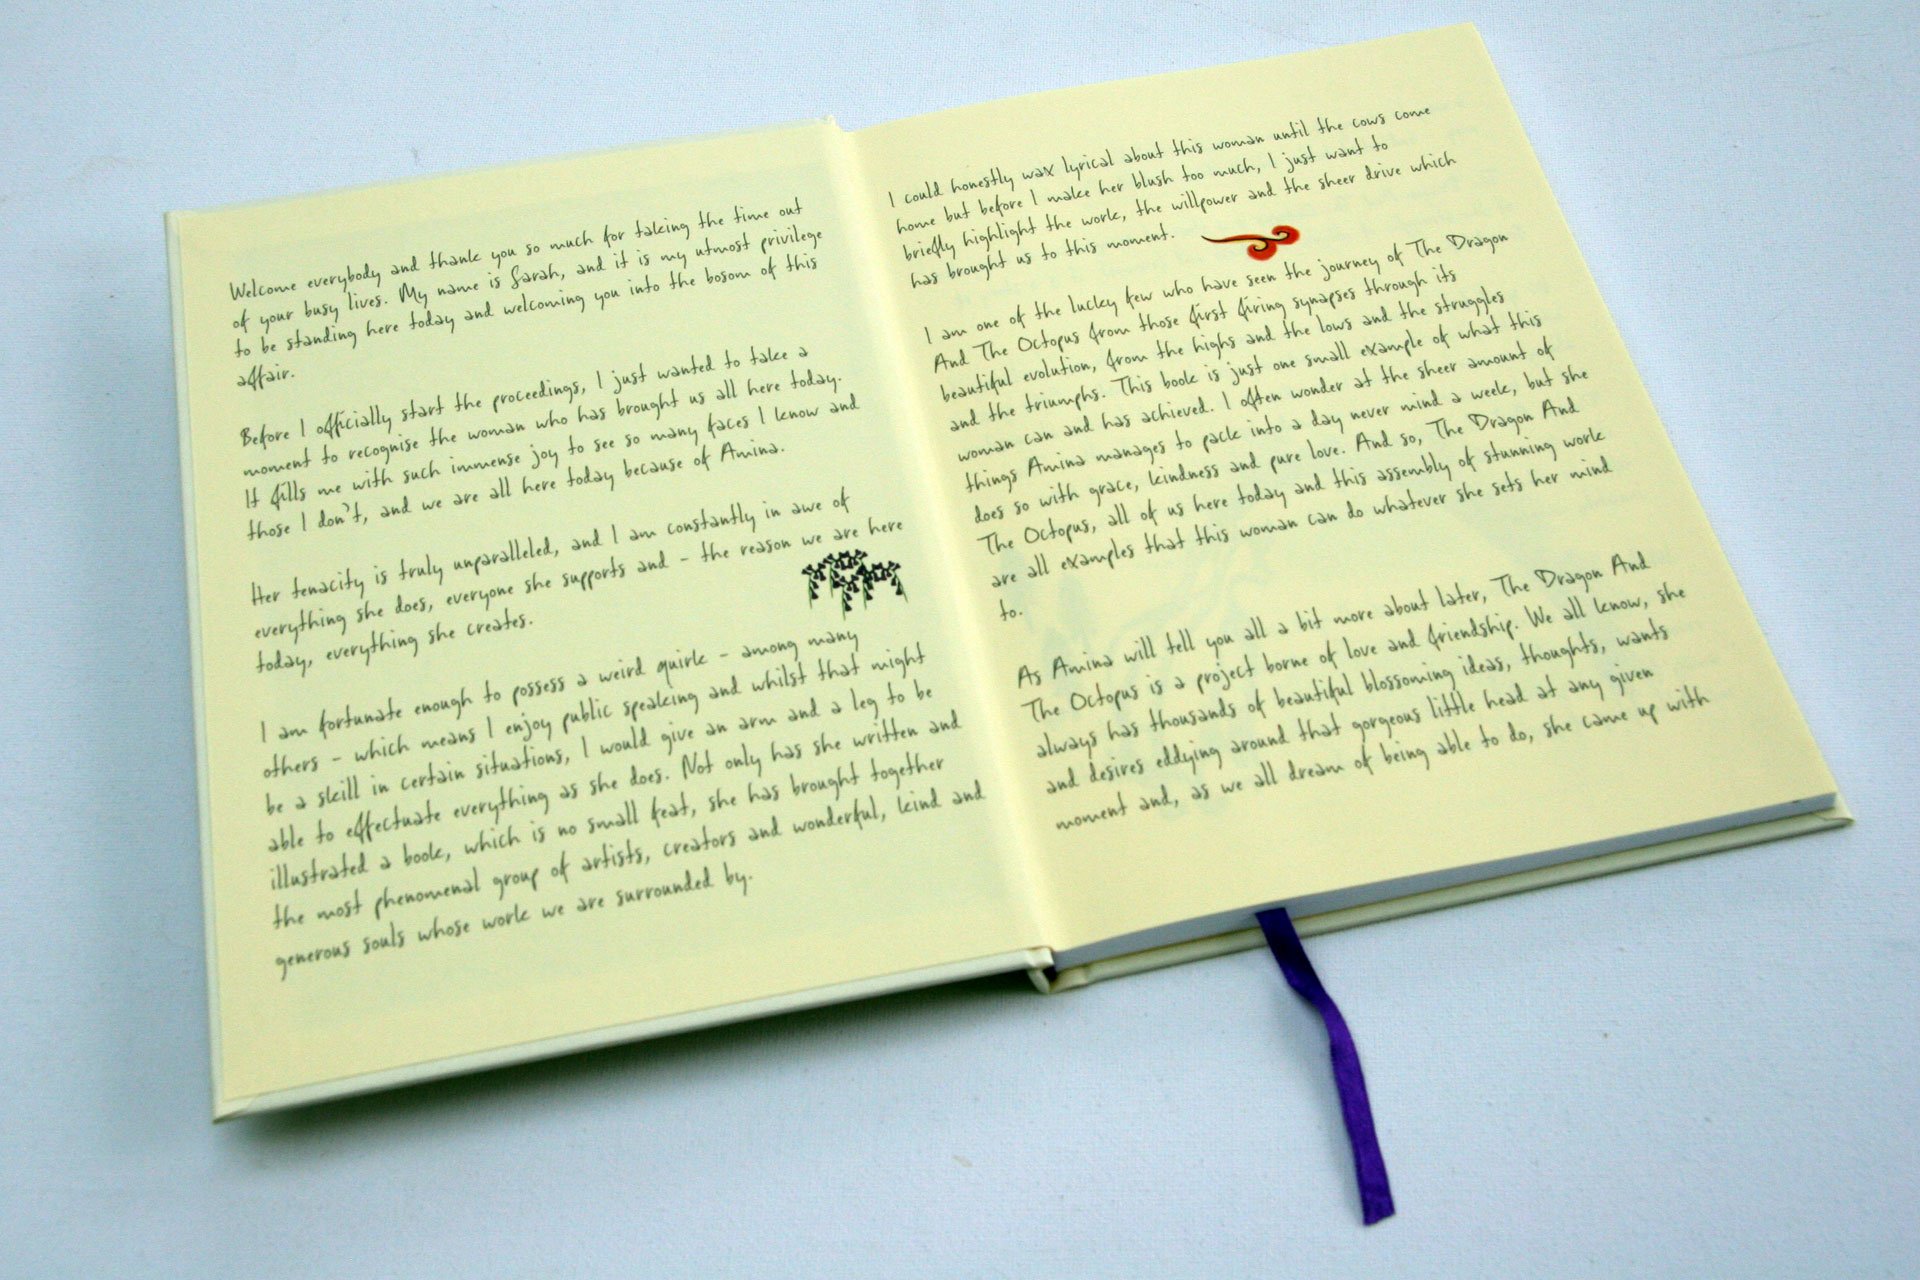 Welcome everybody and thank you so much for taking the time out
of your busy lives. My name is Sarah, and it is my utmost privilege
to be standing here today and welcoming you into the bosom of this
affair.
Before I officially start the proceedings, I just wanted to take a
moment to recognise the woman who has brought us all here today.
It fills me with such immense joy to see so many faces I know and
those I don't, and we are all here today because of Amina.
Her tenacity is truly unparalleled, and I am constantly in awe of
everything she does, everyone she supports and - the reason we are here
today, everything she creates.
I am fortunate enough to possess a weird quirk - among many
others - which means I enjoy public speaking and whilst that might
be a skill in certain situations, I would give an arm and a leg to be
able to effectuate everything as she does. Not only has she written and
illustrated a book, which is no small feat, she has brought together
the most phenomenal group of artists, creators and wonderful, kind and
generous souls whose work we are surrounded by.
I could honestly wax lyrical about this woman until the cows come
home but before I make her blush too much, I just want to
briefly highlight the work, the willpower and the sheer drive which
has brought us to this moment.
I am one of the lucky few who have seen the journey of The Dragon
And The Octopus from those first firing synapses through its
beautiful evolution, from the highs and the lows and the struggles
and the triumphs. This book is just one small example of what this
woman can and has achieved. I often wonder at the sheer amount of
things Amina manages to pack into a day never mind a week, but she
does so with grace, kindness and pure love. And so, The Dragon And
The Octopus, all of us here today and this assembly of stunning work
are all examples that this woman can do whatever she sets her mind
to.
As Amina will tell you all a bit more about later, The Dragon And
The Octopus is a project borne of love and friendship. We all know, she
always has thousands of beautiful blossoming ideas, thoughts, wants
and desires eddying around that gorgeous little head at any given
moment and, as we all dream of being able to do, she came up with